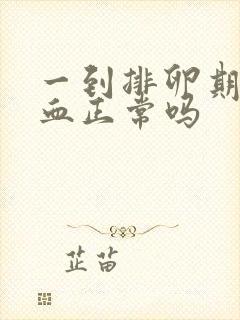 一到排卵期
血正常吗
芷苗